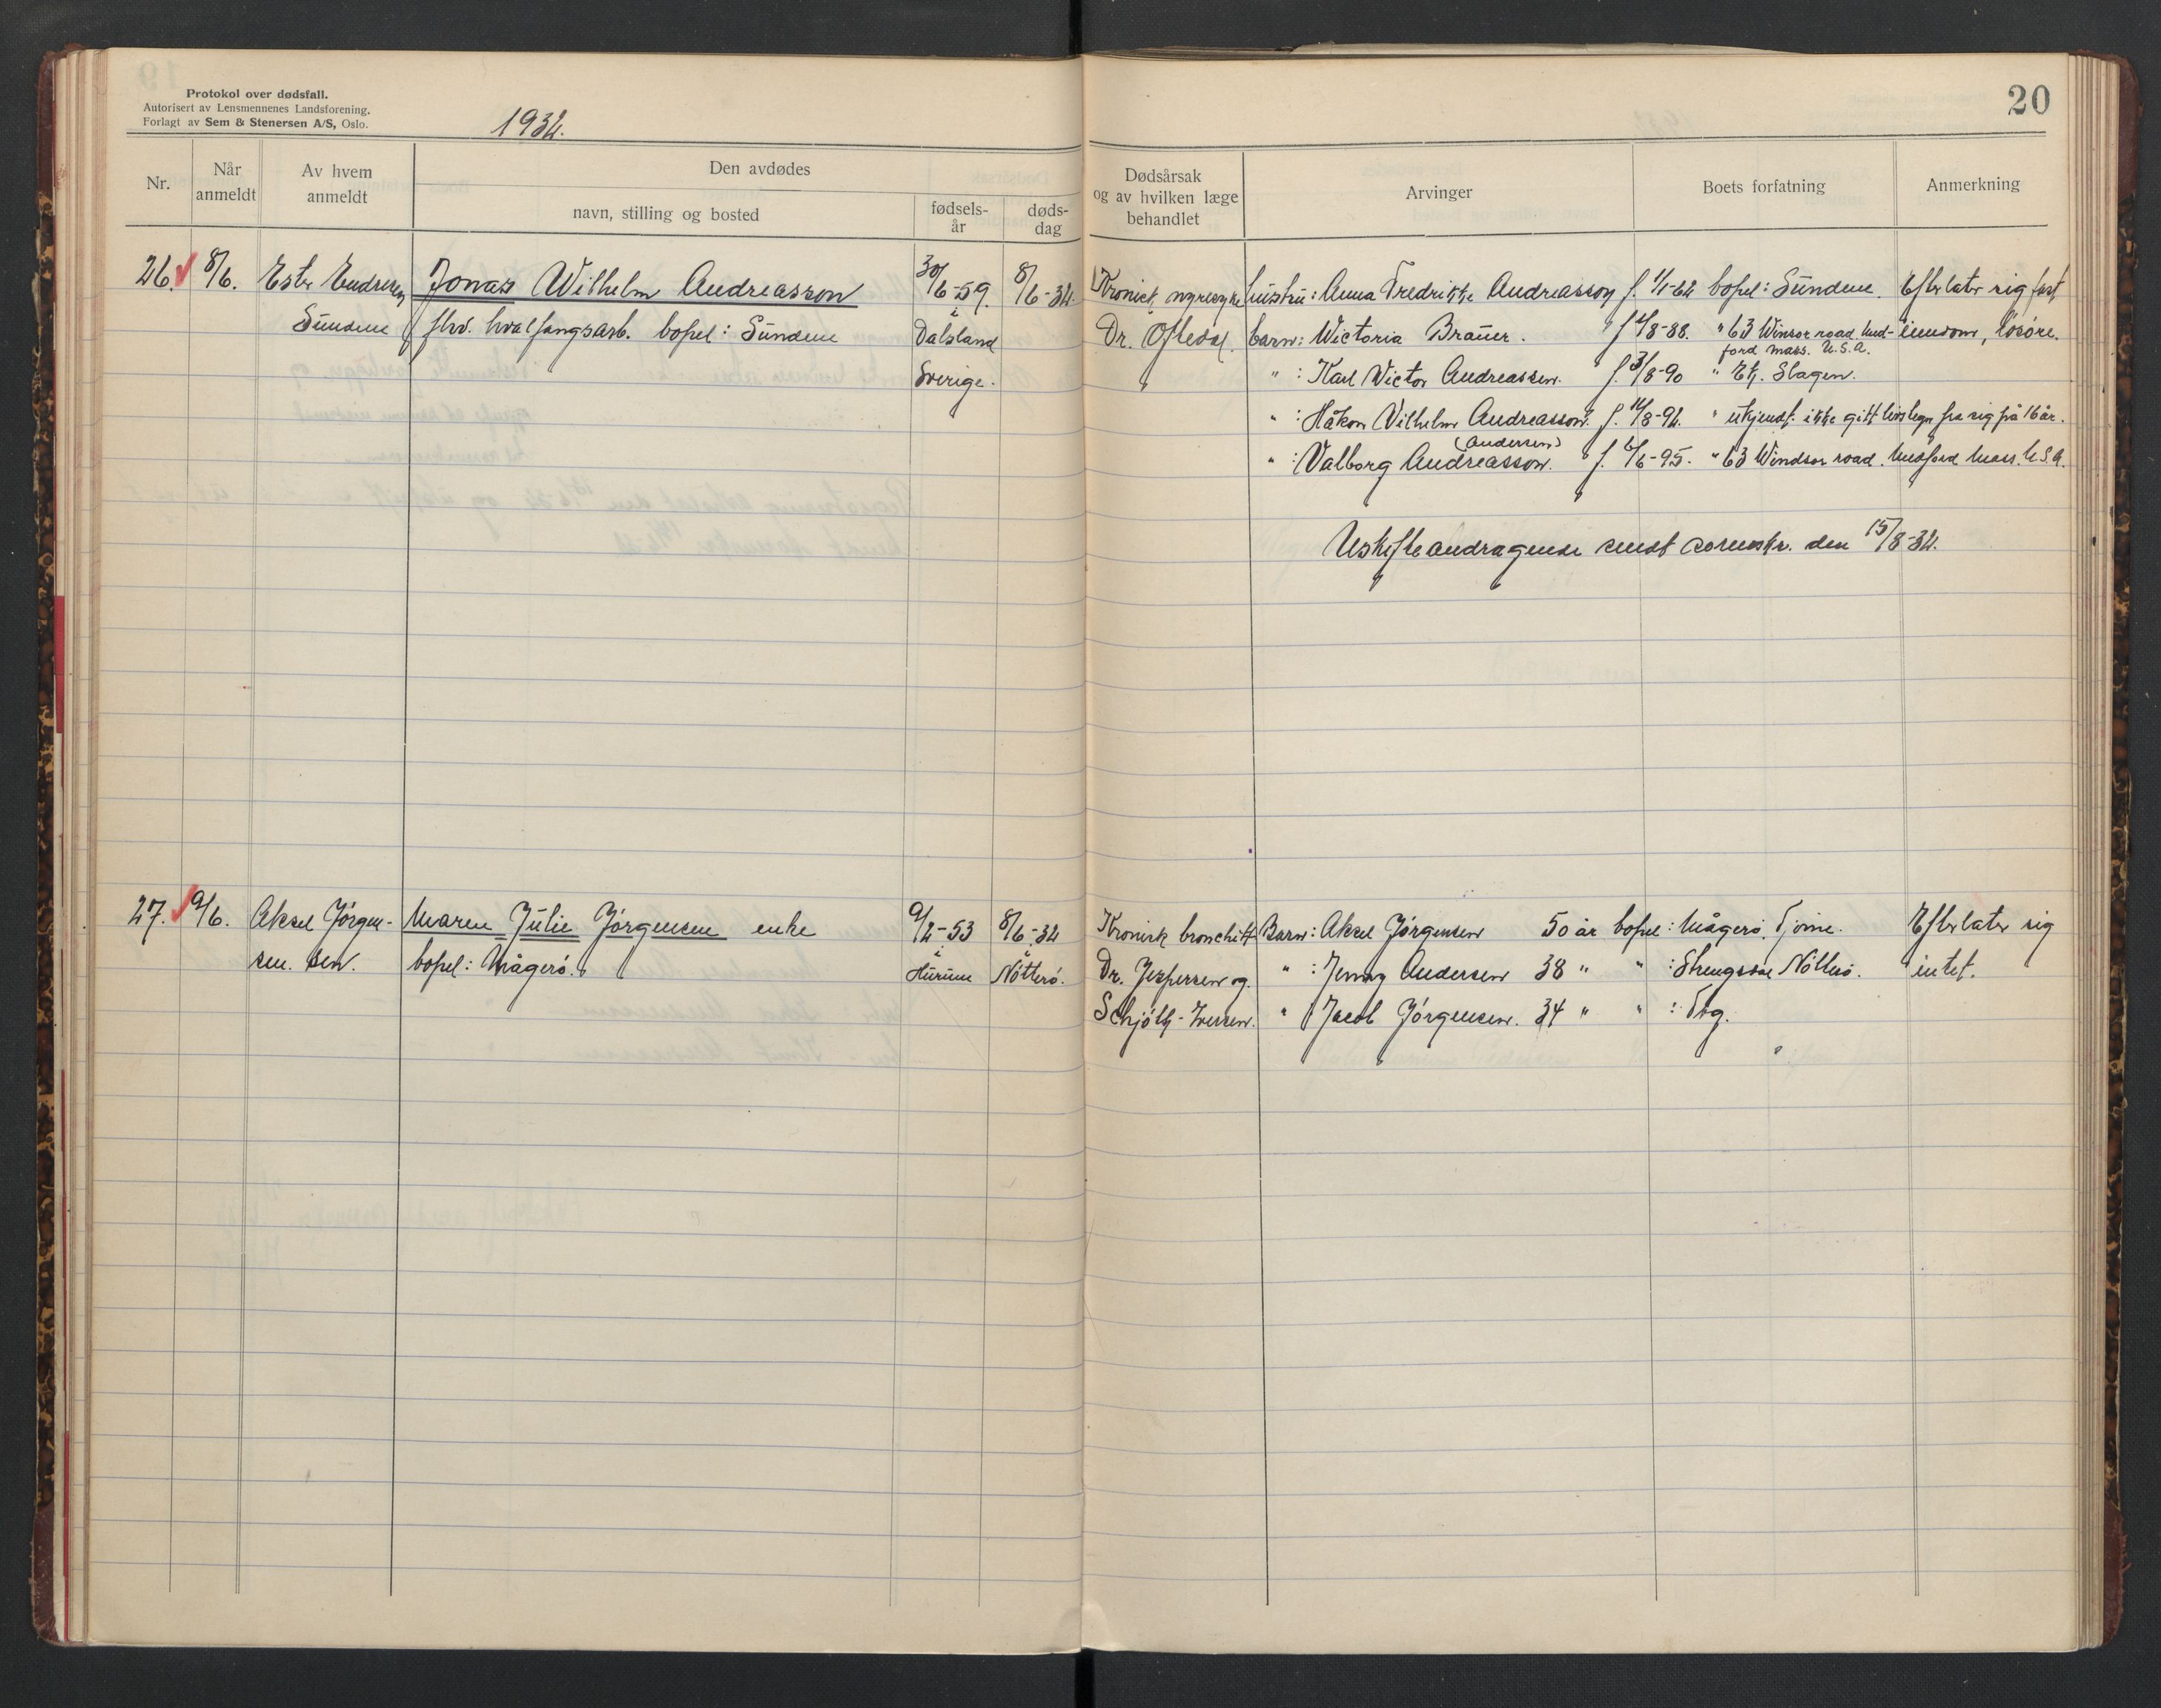 Protokol over dødsfall.
Autorisert av Lensmennenes Landsforening.
Forlagt av Sem & Stenersen A/S, Oslo.
1934.
20
Nr.
Når anmeldt
Av hvem anmeldt
Den avdødes
navn, stilling og bosted
fødsels-år
døds-dag
Dødsårsak og av hvilken læge behandlet
Arvinger
Boets forfatning
Anmerkning
26. 8/6. Ester Endresen Jonas Wilhelm Andreasson 30/6-59. 8/6-34 Kronisk nyresyke hustru: Anna Fredrikke Andreasson f. 1/1-64 bopel: Sundene. Efterlater sig fast
Sundene fhv. hvalfangsarb. bopel: Sundene i Dalsland Dr. Oftedal. barn: Wictoria Braüer. " f 4/8-88. " 63 Winsor road Med- eiendom, løsøre.
ford mass. U.S.A.
Sverige. " : Karl Victor Andreassen. " f. 3/8-90 " Ek. Slagen.
" : Håkon Vilhelm Andreasson. f. 14/8-94. " ukjendt. ikke gitt livstegn fra sig på 16 år.
(Andersen)
" : Valborg Andreasson. " f. 6/6-95. " 63 Windsor road. Medford Mass. U.S.A.
Uskifteandragende sendt sorenskr. den 15/8-34.
27. 9/6. Aksel Jørgen- Maren Julie Jørgensen enke 9/2-53 8/6-34 Kronisk bronchitt Barn: Aksel Jørgensen 50 år bopel: Mågerø, Tjøme. Efterlater sig
sen. sen. bopel: Mågerø. i Hurum i Nøtterø. Dr. Jespersen og " : Jenny Andersen 38 " " : Strengsdal Nøtterø. intet.
Schjøth-Iversen. " Jacob Jørgensen. 34 " " : Tbg.